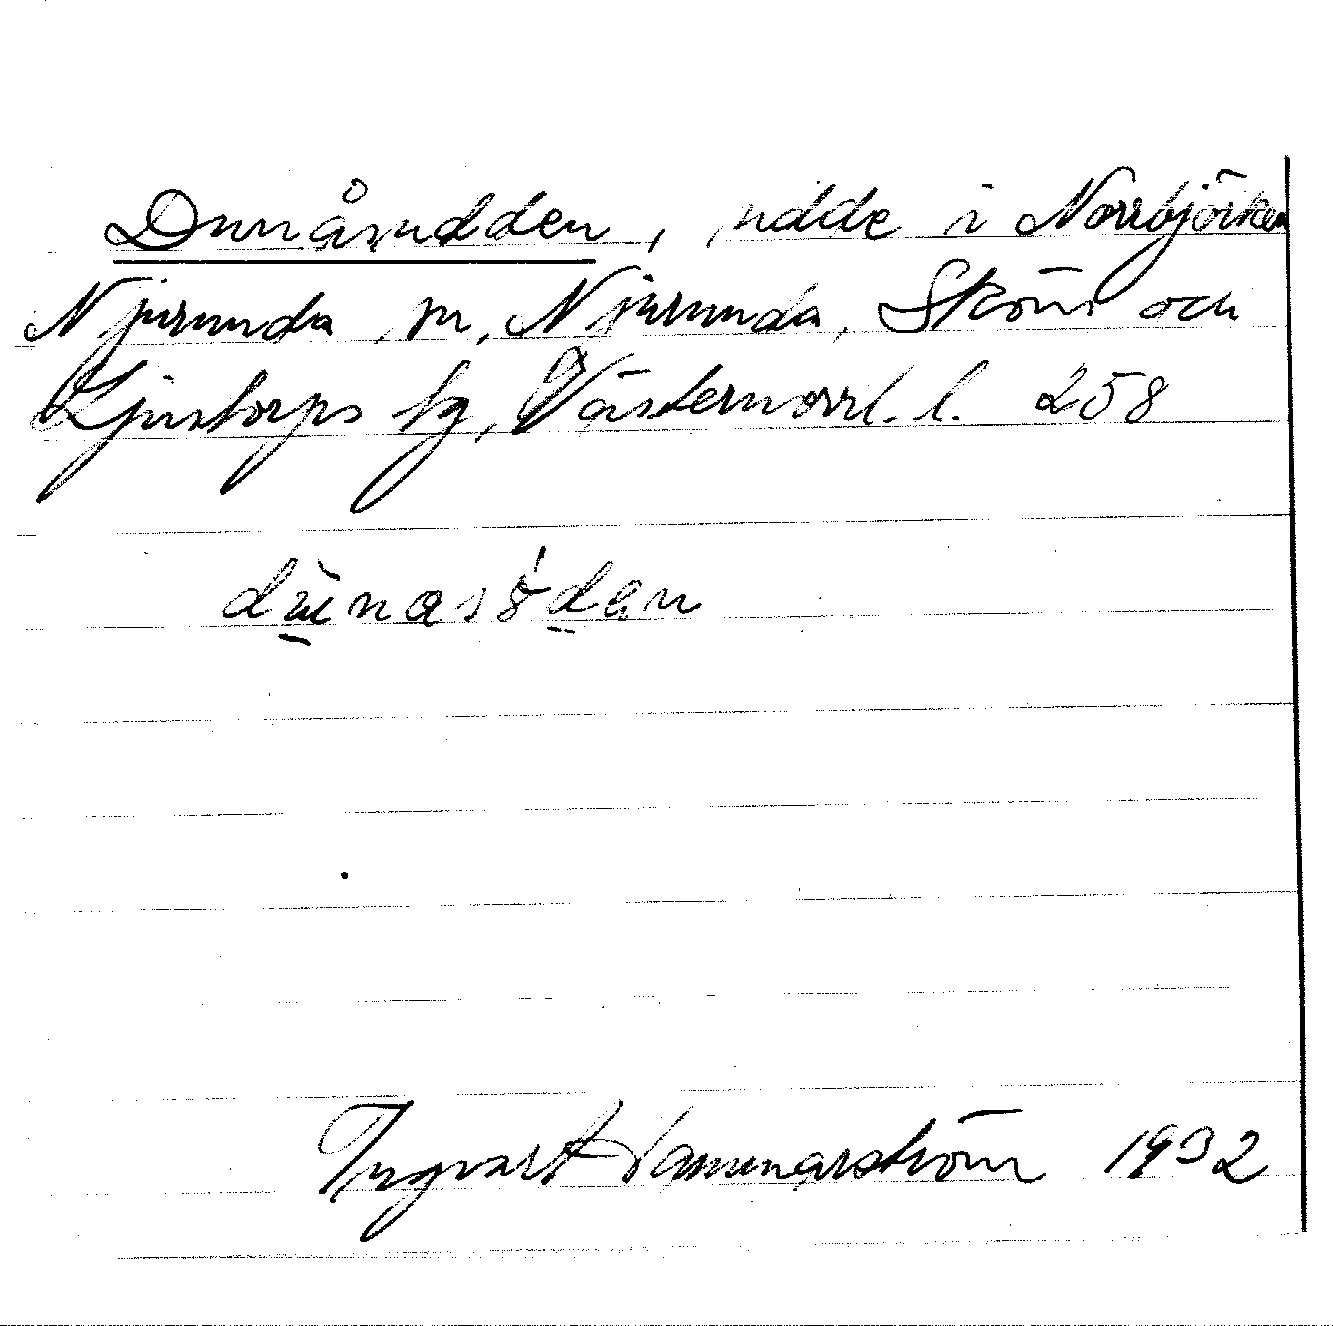 Dunåsudden, udde i Norrbjörken
Njurunda sn, Njurunda, Sköns och
Ljustorps tg, Västernorrl. l. 258
Ingvart Dammarström 1932